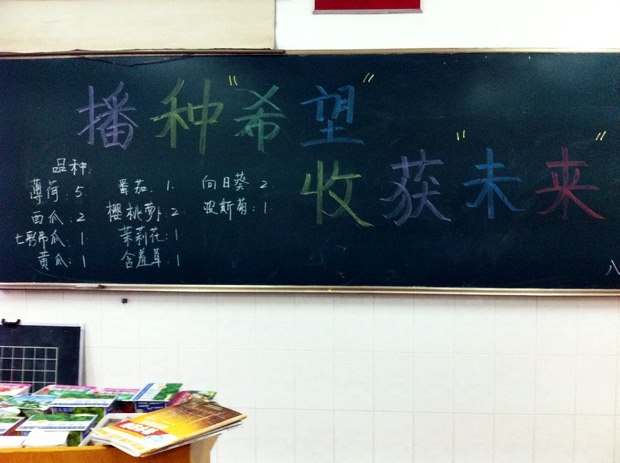 播种“希望”
收获“未来”
品种:
薄荷:5 番茄:1 向日葵:2
西瓜:2 樱桃萝卜:2 波斯菊:1
七彩吊瓜:1 茉莉花:1
黄瓜:1 含羞草:1
八